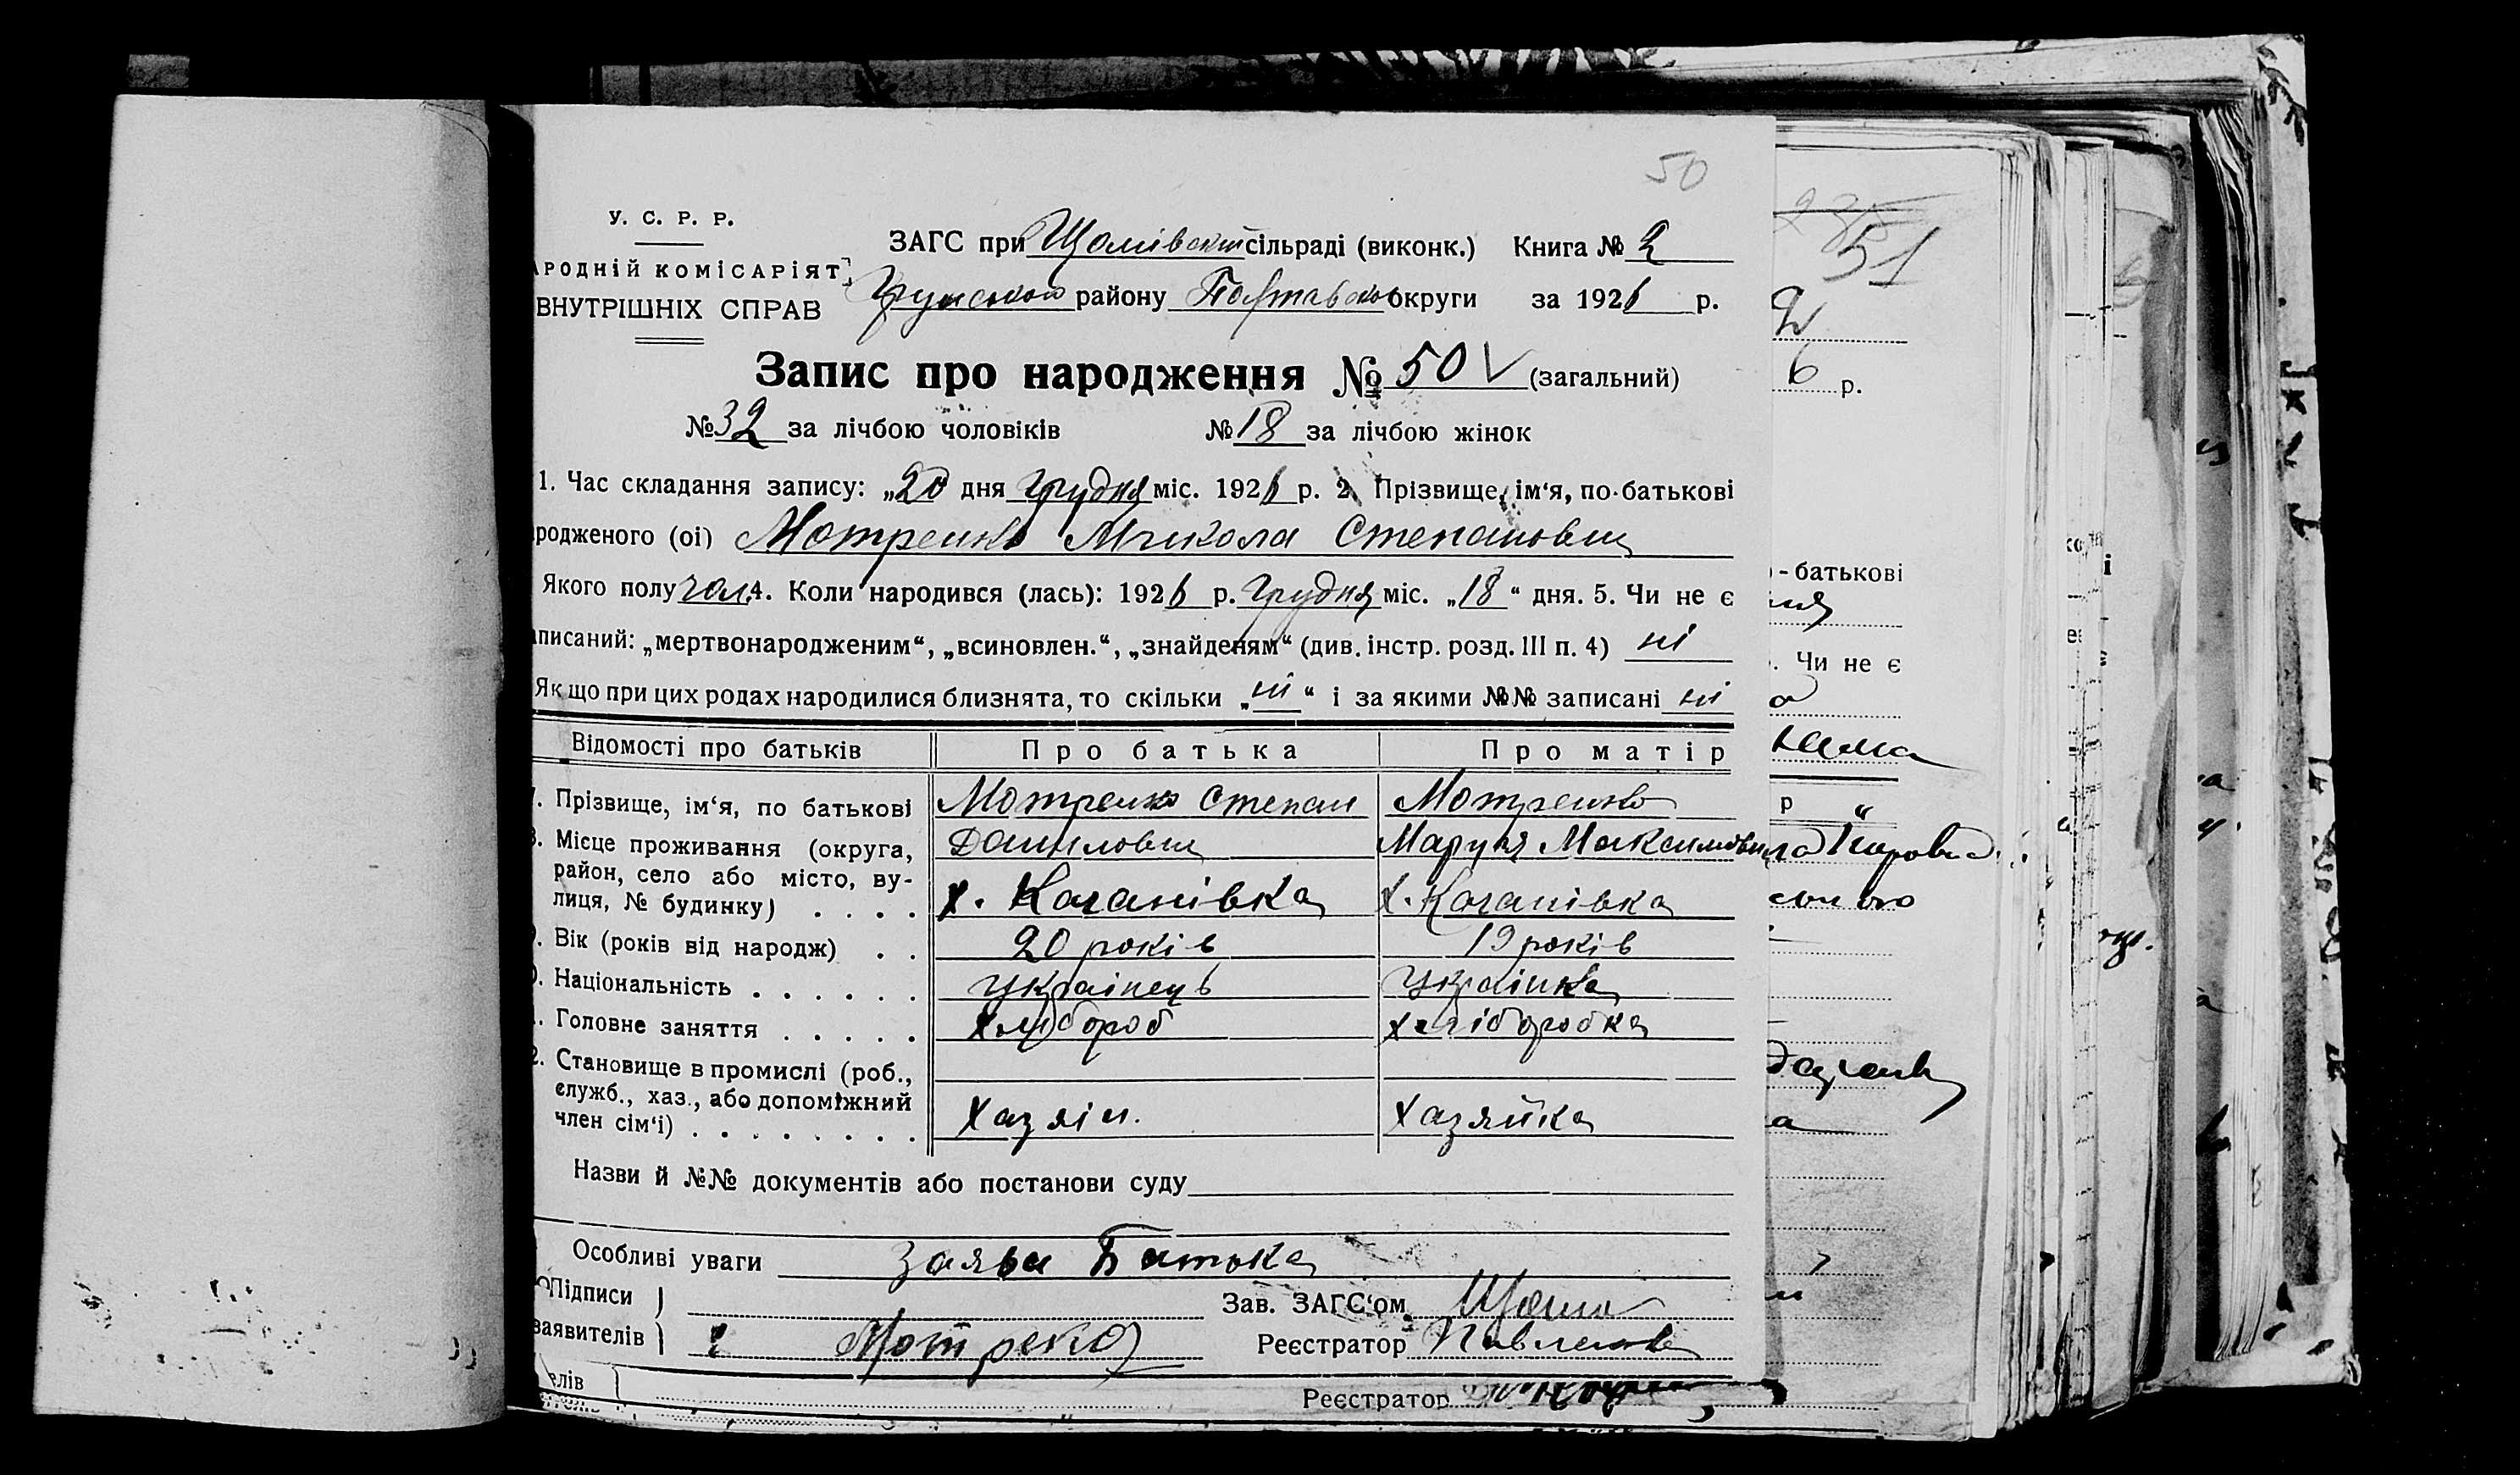 50
У. С. Р. Р.
АРОДНІЙ КОМІСАРІЯТ
ВНУТРІШНІХ СПРАВ
ЗАГС при сільраді (виконк.) Книга № 2
району Полтавської округи за 1926 р.
Запис про народження № 50 V (загальний)
№ 32 за лічбою чоловіків № 18 за лічбою жінок
1. Час складання запису: „20 дня грудня міс. 1926 р. 2. Прізвище, ім‘я, по-батькові
родженого (оі) Мотренко Микола Степанович
Якого полу чол. 4. Коли народився (лась): 1926 р. грудня міс. „18“ дня. 5. Чи не є
аписаний: „мертвонародженим“, „всиновлен.“, „знайденям“ (див. інстр. розд. III п. 4) ні
Якщо при цих родах народилися близнята, то скільки „ні“ і за якими №№ записані ні
Відомості про батьків Про батька Про матір
7. Прізвище, ім‘я, по батькові Мотренко Степан Мотренко
Данилович Марія Максимовна
8. Місце проживання (округа,
район, село або місто, ву-
лиця, № будинку) . . . . х. Качанівка х. Качанівка
9. Вік (років від народж) . . 20 років 19 років
0. Національність . . . . . . українець українка
1. Головне заняття . . . . . хлібороб хліборобка
2. Становище в промислі (роб.,
служб., хаз., або допоміжний
член сім‘ї) . . . . . . . . хазяїн. хазяйка
Назви й №№ документів або постанови суду
Особливі уваги заява Батька
Підписи Зав. ЗАГС‘ом
заявителів Мотреко Реєстратор Павленко
елів Реєстратор
51
2
6 р.
-батькові
. Чи не є
р “